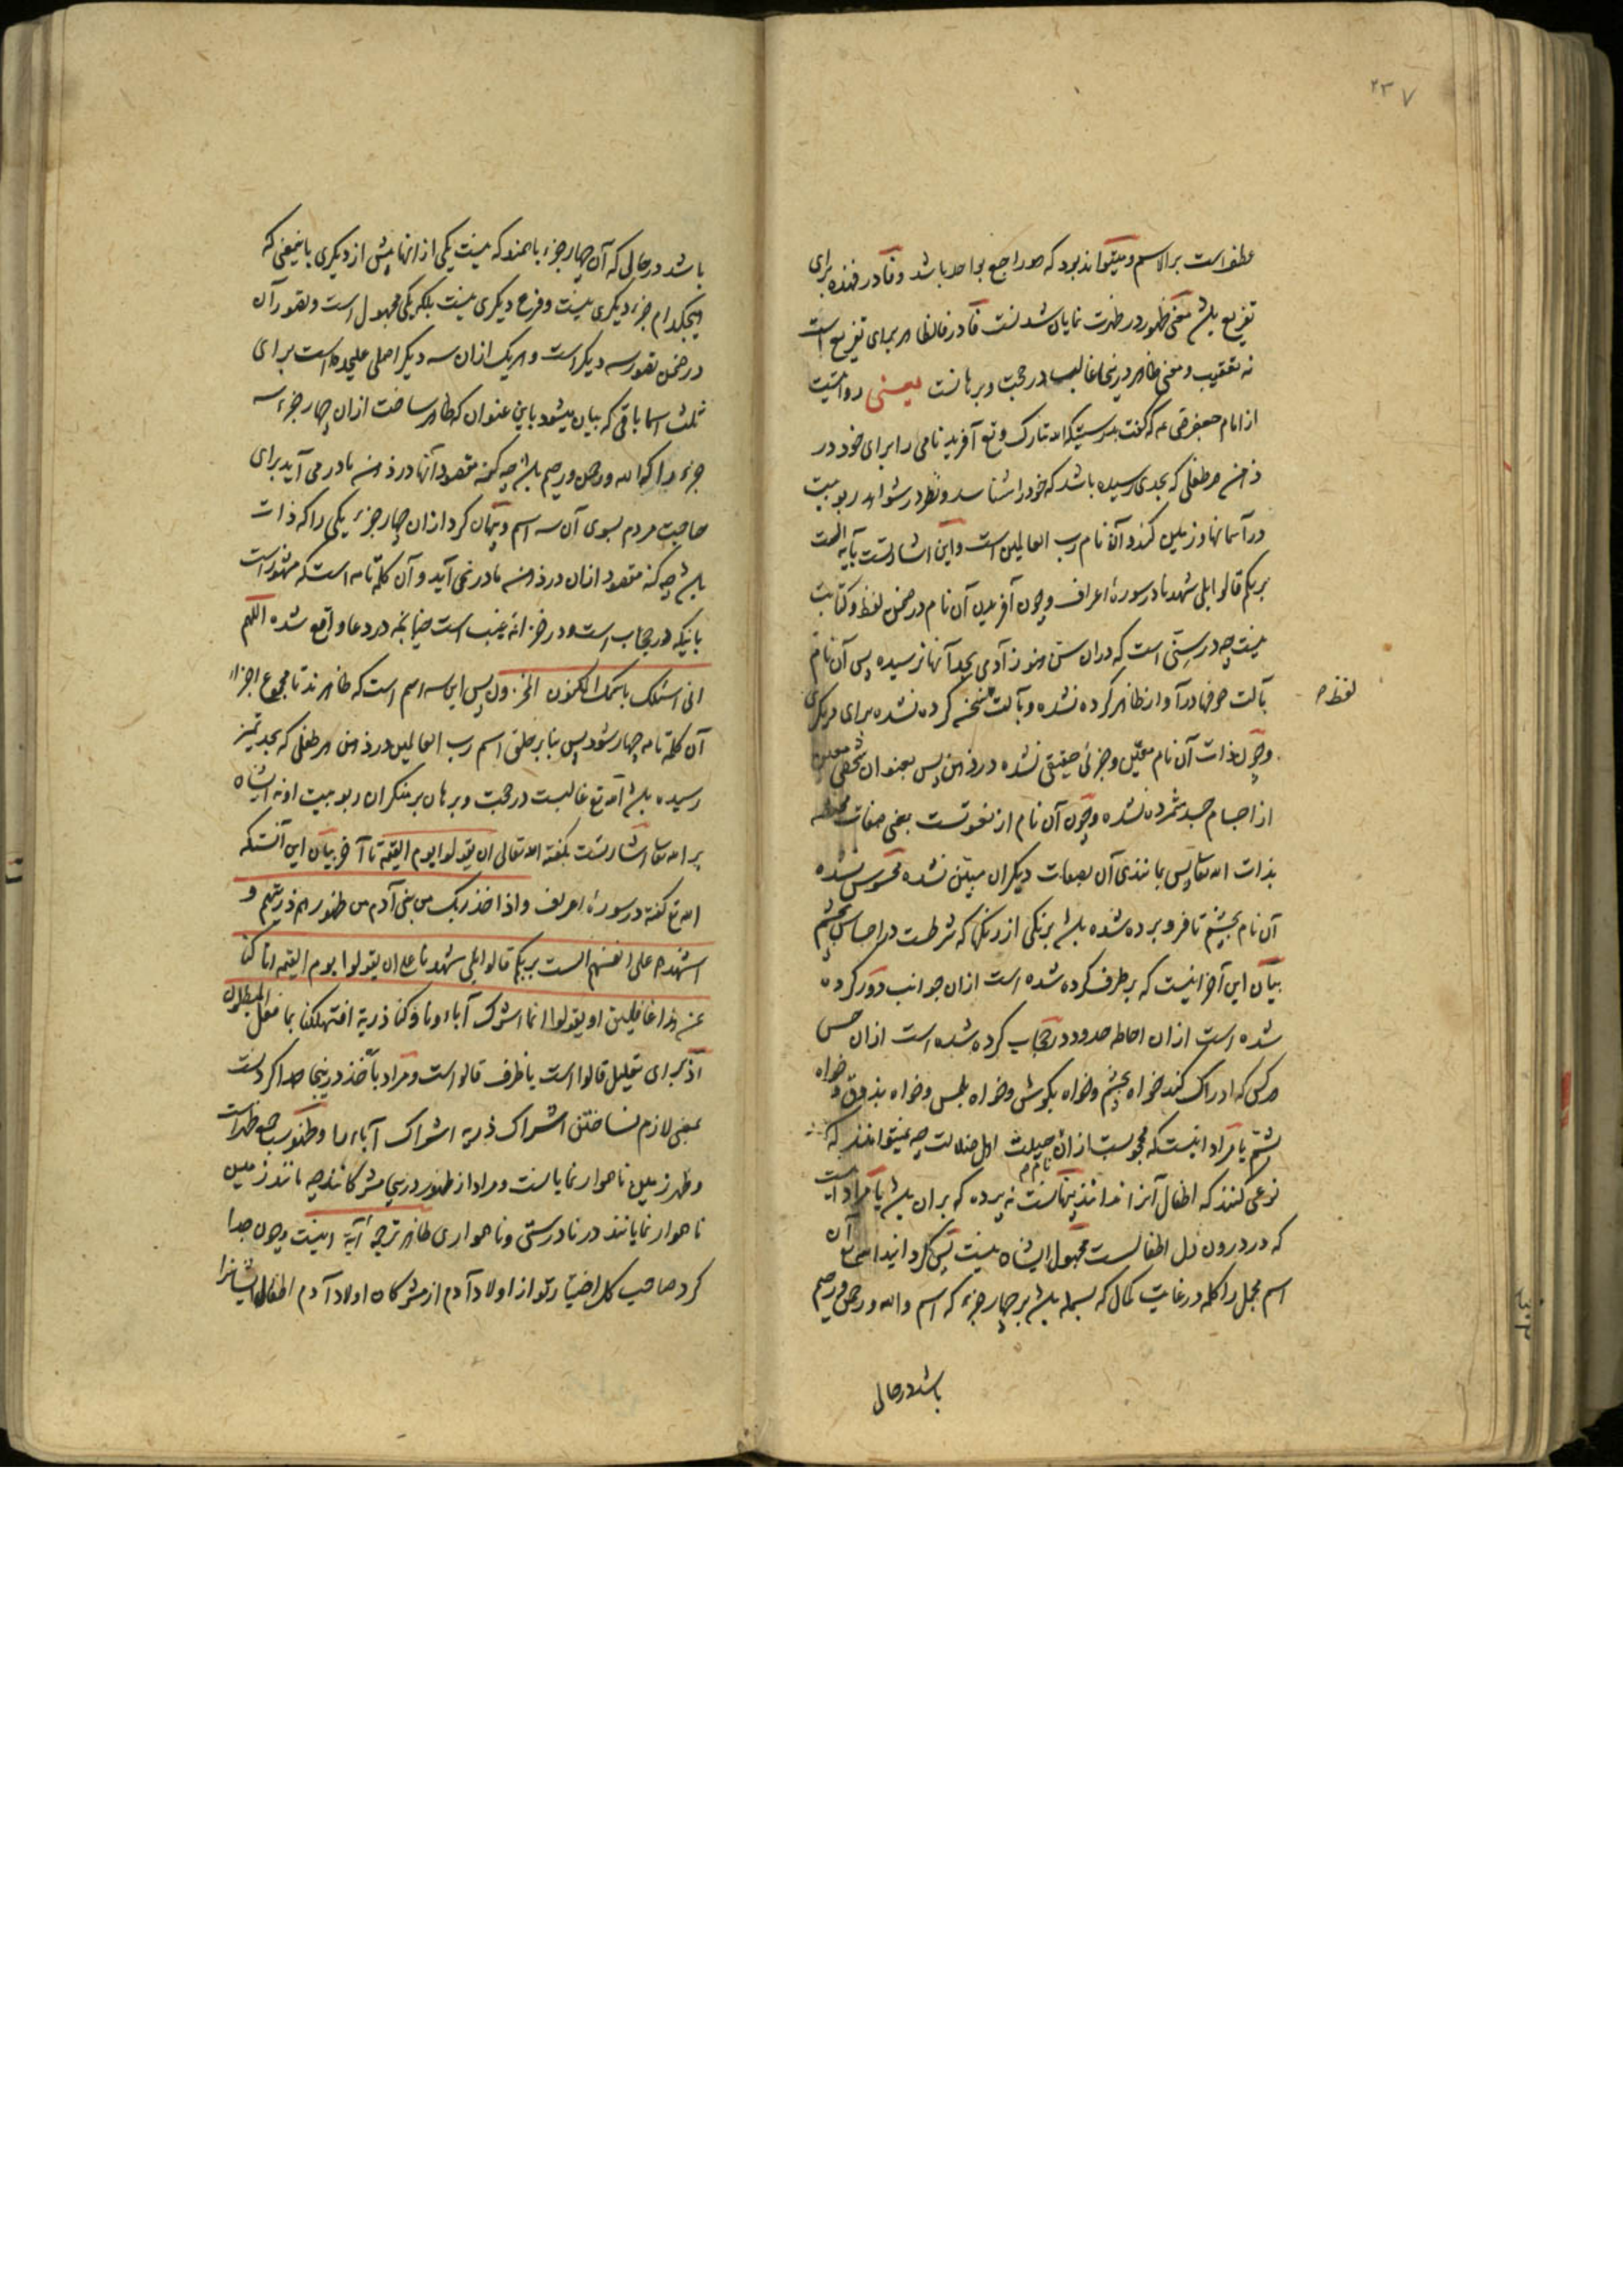 ۲۳۷
عطف است بر الاسم و میتواند بود که هو راجع بواحد باشد و فا در فهذه برای
تفریع باشد معنی ظهور در ظهرت نمایان شدنست فا در فالظاهر برای تفریع است
نه تعقیب و معنی ظاهر درینجا غالب در حجت و برهانست یعنی روایتست
از امام جعفر که گفت بدرستیکه الله تبارک و تع آفرید نامی را برای خود در
ذهن هر طفلی که بحدی رسیده باشد که خود را شناسد و نظر در شواهد ربوبیت
در آسمانها و زمین کند و آن نام رب العالمین است و این اشارتست بآیه الست
بربکم قالوا بلی شهدنا در سورهٔ اعراف و چون آفریدن آن نام در ضمن لفظ و کتابت
نیست چه در سنی است که در ان سن هنوز آدمی بحد آنها نرسیده پس آن نام
بآلت حرفها در آواز ظاهر کرده نشده و بآلت لفظ سخن کرده نشده برای دیگری
لفظ ص
و چون ذات آن نام معین و جزئی حقیقی نشده در ذهن پس بعنوان شخصی معین
از اجسام جسد شمرده نشده و چون آن نام از نعوتست یعنی صفات
بذات الله تعا پس بمانندی آن بصفات دیگران مبین نشده محسوس نشده
آن نام بچشم تا فرو برده شده باشد برنگی از رنگها که شرطست در احساس بچشم
بیان این آخر اینست که برطرف کرده شده است ازان جوانب دور کرده
شده است ازان احاطه حدود در حجاب کرده شده است ازان حس
هر کس که ادراک کند خواه بچشم و خواه بگوش و خواه بلمس و خواه بذوق و خواه
بشم یا مراد اینست که محجوبست ازان حیلت اهل ضلالت چه نمیتوانند که
نوعی کنند که اطفال آنرا ندانند پنهانست نه پرده که بران باشد یا مراد اینست
که در درون دل اطفالست مجهول ایشان نیست پس گردانید الله تع آن
اسم مجمل را کلمه در غایت کمال که بسمله باشد بر چهار جزء که اسم و الله و رحمن و رحیم
باشد در حالی
باشد در حالی که آن چهار جزء باهمند که نیست یکی از انها پیش از دیگری باینمعنی که
هیچکدام جزء دیگری نیست و فرع دیگری نیست بلکه یکی مجهول است و تصور آن
در ضمن تصور سه دیگر است و هریک ازان سه دیگر اصلی علیحده است برای
ثلث اسما باقی که بیان میشود باین عنوان که ظاهر ساخت ازان چهار جزء سه
جزء را که الله و رحمن و رحیم باشد چه کنه مقصود آنها در ذهن ما در می آید برای
حاجت مردم بسوی آن سه اسم و پنهان کرد ازان چهار جزء یکی را که ذات
باشد چه کنه مقصود ازان در ذهن ما در نمی آید و آن کلمه تامه است که مشهور است
بانیکه در حجاب است و در خزانه غیب است چنانچه در دعا واقع شده اللهم
انی اسئلک باسمک المکنون المخزون پس این سه اسم است که ظاهرند تا مجموع اجزاء
آن کلمه تامه چهار شود پس بنابر خلق اسم رب العالمین در ذهن هر طفلی که بحد تمیز
رسیده باشد الله تع غالبست در حجت و برهان بر منکران ربوبیت او نه ایشان
بر الله تعا اشارتست بگفته الله تعالی ان یقولوا یوم القیمة تا آخر بیان این آنستکه
الله تع گفته در سورهٔ اعراف و اذ اخذ ربک من بنی آدم من ظهورهم ذریتهم و
اشهدهم علی انفسهم الست بربکم قالوا بلی شهدنا ان یقولوا یوم القیمة انا کنا
عن هذا غافلین او یقولوا انما اشرک آباءونا و کنا ذریة افتهلکنا بما فعل المبطلون
اذ برای تعلیل قالوا است یا ظرف قالو است و مراد باخذ درینجا جدا کردنست
بمعنی لازم نساختن اشراک ذریة اشراک آباء را و ظهور جمع ظهر است
و ظهر زمین ناهوار نمایانست و مراد از ظهور درینجا مشرکانند چه مانند زمین
ناهوار نمایانند در نادرستی و ناهواری ظاهر ترجمهٔ آیة اینست و چون جدا
کرد صاحب کل اختیار تو از اولاد آدم از مشرکان اولاد آدم اطفال ایشانرا